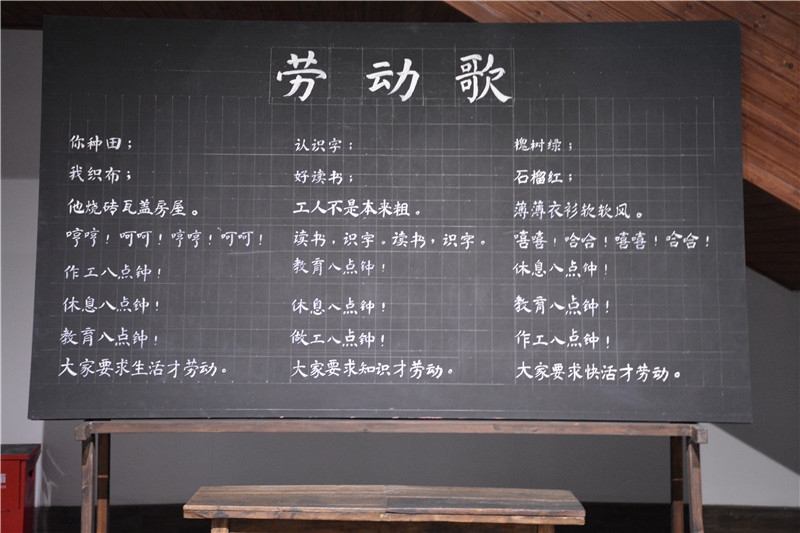 劳动歌
你种田；
我织布；
他烧砖瓦盖房屋。
哼哼！呵呵！哼哼！呵呵！
作工八点钟！
休息八点钟！
教育八点钟！
大家要求生活才劳动。
认识字；
好读书；
工人不是本来粗。
读书，识字。读书，识字。
教育八点钟！
休息八点钟！
做工八点钟！
大家要求知识才劳动。
槐树绿；
石榴红；
薄薄衣衫软软风。
嘻嘻！哈合！嘻嘻！哈合！
休息八点钟！
教育八点钟！
作工八点钟！
大家要求快活才劳动。